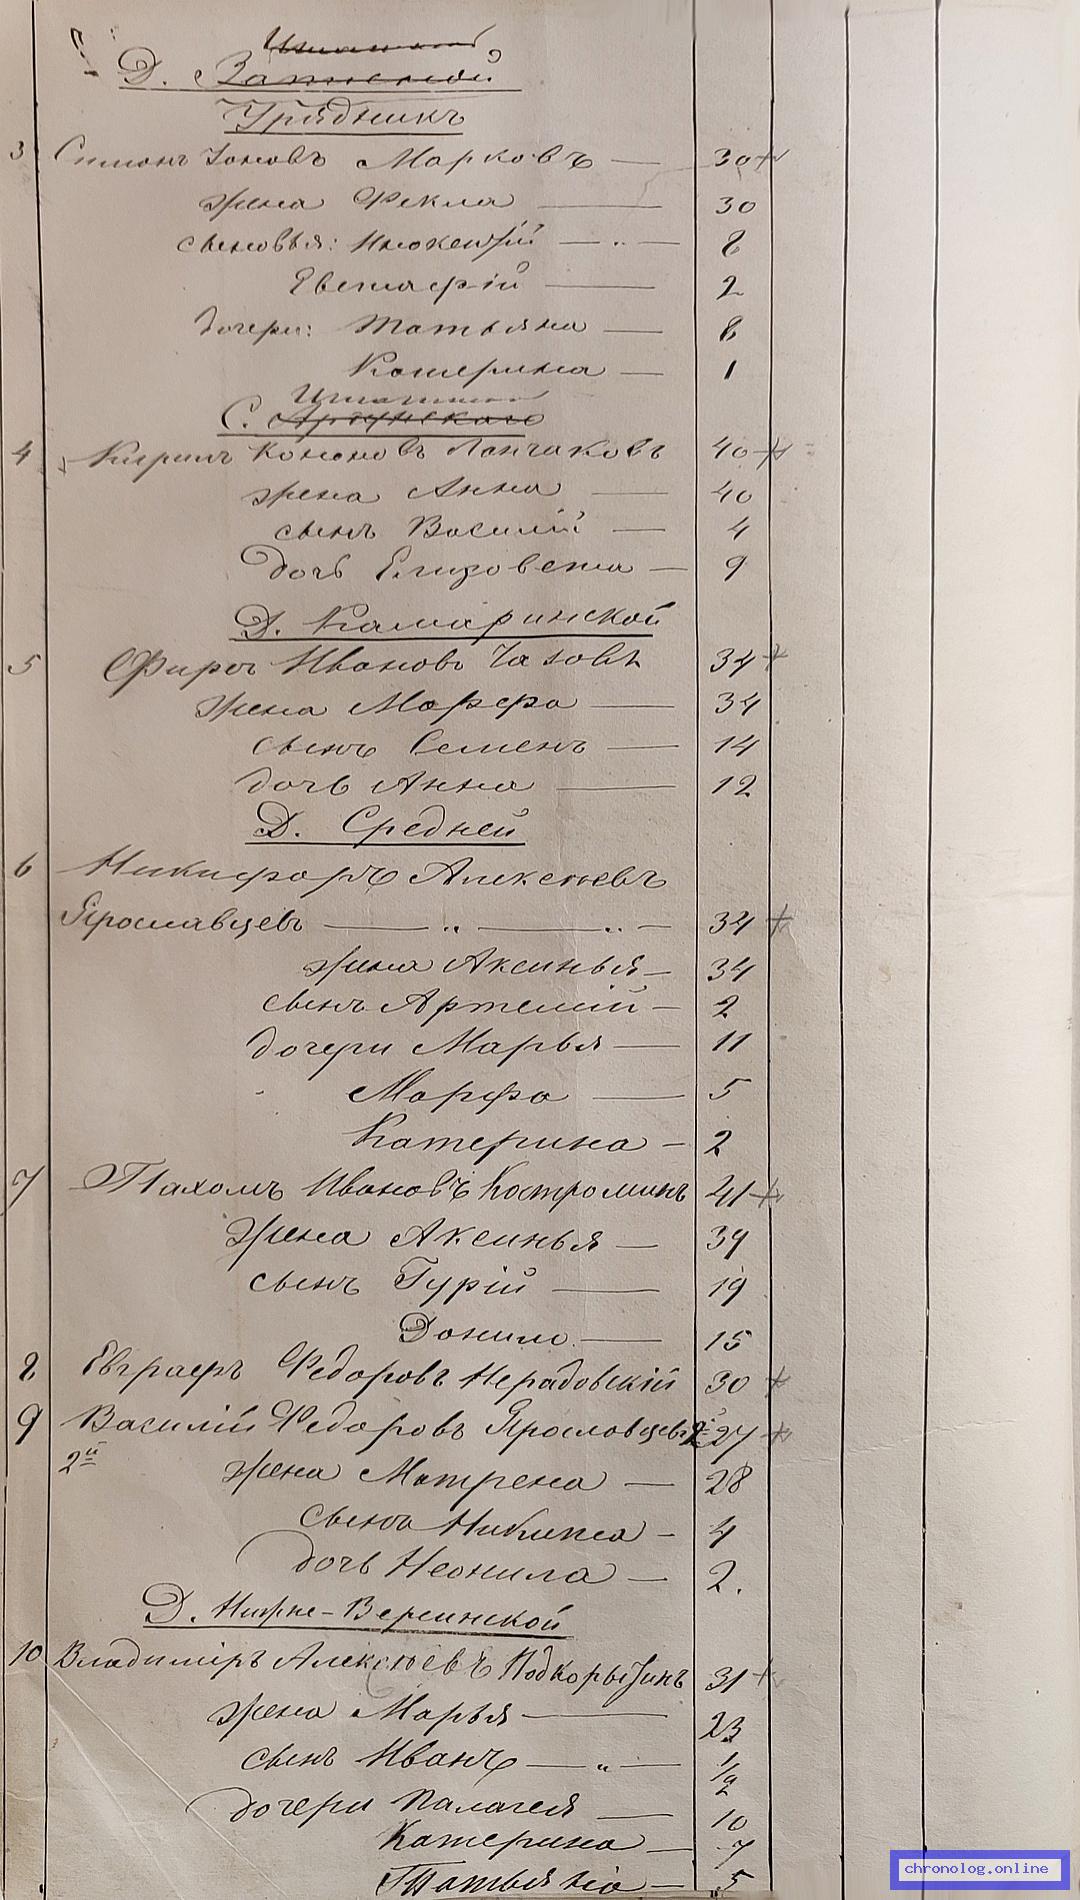 Д. Затенской
Урядникъ
3 Симонъ Іоновъ Марковъ — 30
жена Фекла — 30
сыновья: Инокентій — „ — 8
Евстафій — 2
дочери: Татьяна — 8
Катерина — 1
С. Аргунскаго
4 Кирилъ Кононовъ Лончаковъ 40
жена Анна — 40
сынъ Василій — 4
дочь Елизовета — 9
Д. Камаринской
5 Фирсъ Ивановъ Чазовъ 34
жена Марфа — 34
сынъ Семенъ — 14
дочь Анна — 12
Д. Средней
6 Никифоръ Алексѣевъ
Ярославцевъ — „ — „ — 34
жена Аксинья — 34
сынъ Артемій — 2
дочери Марья — 11
Марфа — 5
Катерина — 2
7 Пахомъ Ивановъ Костроминъ 41
жена Аксинья — 39
сынъ Гурій — 19
Донило — 15
8 Евграфъ Федоровъ Нерадовскій 30
9 Василій Федоровъ Ярославцевъ 27
2й жена Матрена — 28
сынъ Никита — 4
дочь Неонила — 2.
Д. Нижне-Верхинской
10 Владиміръ Алексѣевъ Подкорытинъ 31
жена Марья — 23
сынъ Иванъ — „ — 1/2
дочери Палагея — 10
Катерина — 7
Татьяна — 5
chronolog.online